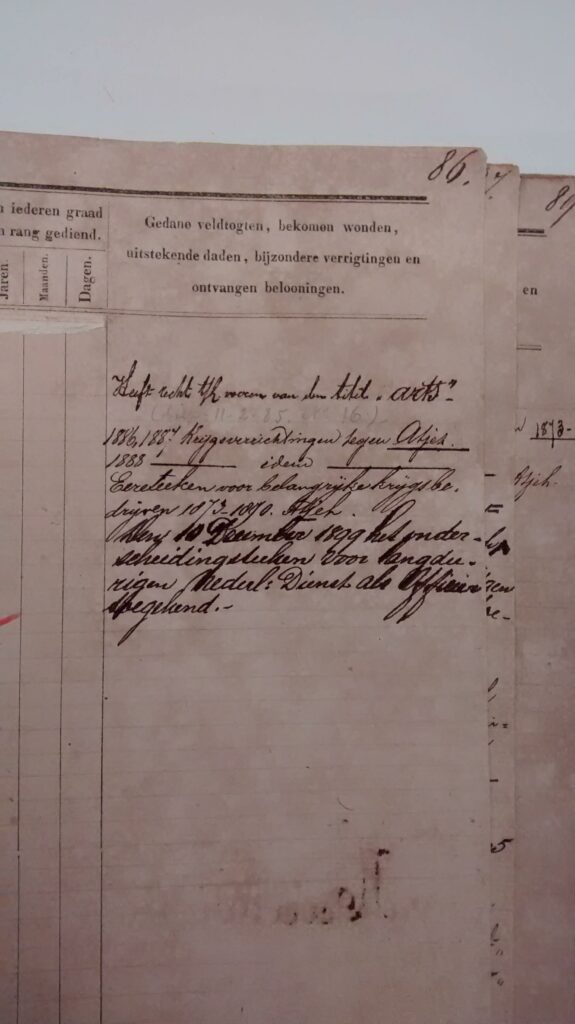 86.
n iederen graad
n rang gediend.
Jaren.
Maanden.
Dagen.
Gedane veldtogten, bekomen wonden,
uitstekende daden, bijzondere verrigtingen en
ontvangen belooningen.
Heeft recht t/h voeren van den titel „arts"
1886, 1887 Krijgsverrichtingen tegen Atjeh.
1888 idem
Eereteeken voor belangrijke krijgsbe-
drijven 1873-1890. Atjeh.
10 December 1899 het onder-
scheidingsteeken voor langdu-
rigen Nederl: Dienst als Officier
toegekend.-
89
en
1873-
Atjeh.